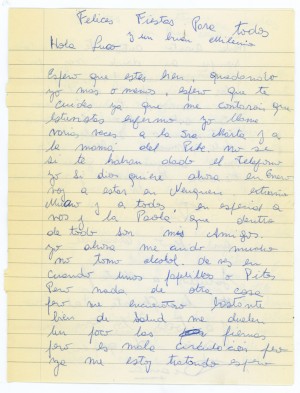 Felices Fiestas Para todos
y un buen Milenio
Hola
Espero que estes bien, quedando
yo más o menos, espero que te
cuides ya que me contaron que
estuvistes enfermo yo llame
varias veces a la Sra Marta y a
la mamá del Pete no se
si te habran dado el telefono
yo Si dios quiere ahora en enero
voy a estar en Neuquen
y a todos, en especial a
vos y la Paola, que dentro
de todo son mis Amigos.
yo ahora me cuido mucho
no tomo alcohol. de ves en
cuando unos papelillos o Pitos
Pero nada de otra cosa
pero me encuentro bastante
bien de Salud me duelen
un poco las piernas
pero es mala circulación pero
ya me estoy tratando espero